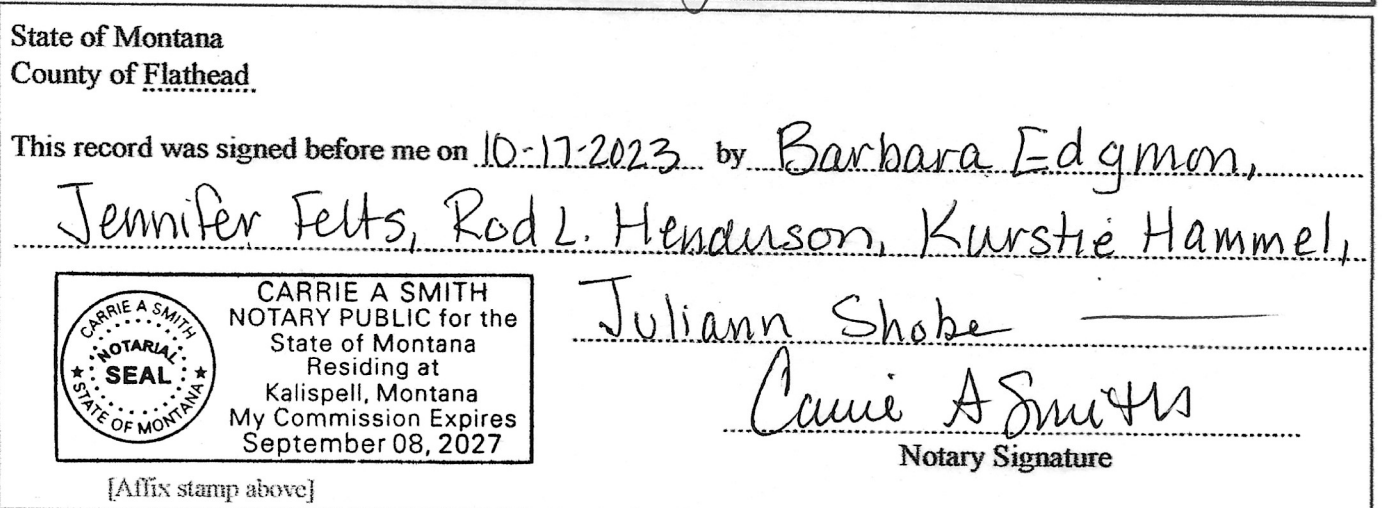 State of Montana
County of Flathead
This record was signed before me on 10-17-2023 by Barbara Edgmon,
Jennifer Felts, Rod L. Henderson, Kurstie Hammel,
Juliann Shobe
CARRIE A SMITH
NOTARIAL
SEAL
STATE OF MONTANA
CARRIE A SMITH
NOTARY PUBLIC for the
State of Montana
Residing at
Kalispell, Montana
My Commission Expires
September 08, 2027
[Affix stamp above]
Carrie A Smith
Notary Signature